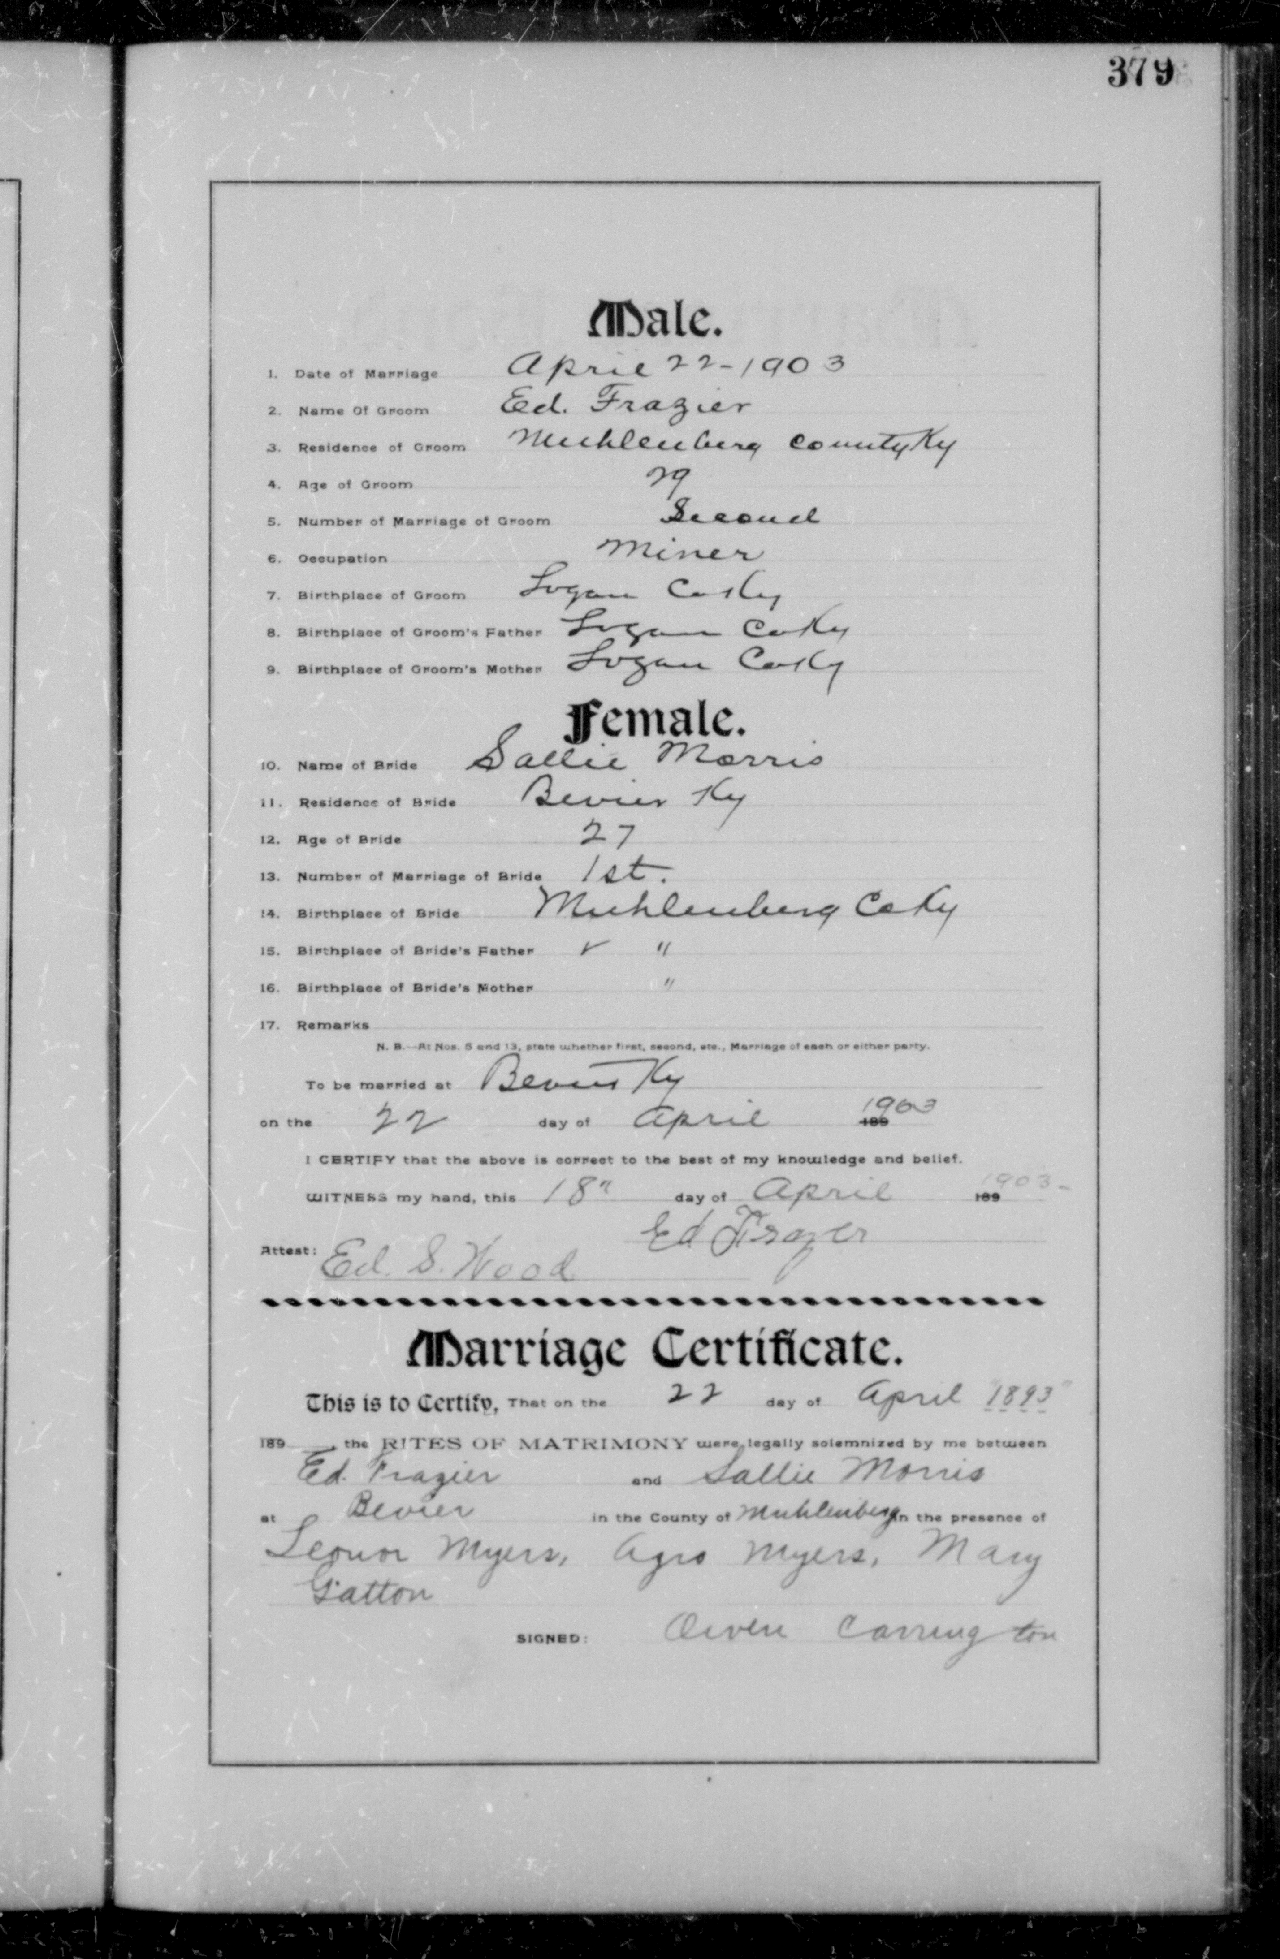 379
Male.
1. Date of Marriage April 22-1903
2. Name Of Groom Ed. Frazier
3. Residence of Groom Muhlenberg County Ky
4. Age of Groom 29
5. Number of Marriage of Groom Second
6. Occupation Miner
7. Birthplace of Groom Logan Co Ky
8. Birthplace of Groom's Father Logan Co Ky
9. Birthplace of Groom's Mother Logan Co Ky
Female.
10. Name of Bride Sallie Morris
11. Residence of Bride Bevier Ky
12. Age of Bride 27
13. Number of Marriage of Bride 1st.
14. Birthplace of Bride Muhlenberg Co Ky
15. Birthplace of Bride's Father " "
16. Birthplace of Bride's Mother "
17. Remarks
N. B.—At Nos. 5 and 13, state whether first, second, etc., Marriage of each or either party.
To be married at Bevier Ky
on the 22 day of April 189 1903
I CERTIFY that the above is correct to the best of my knowledge and belief.
WITNESS my hand, this 18" day of April 189 1903-
Ed Frazer
Attest: Ed. S. Wood
Marriage Certificate.
This is to Certify, That on the 22 day of April "1893"
189 , the RITES OF MATRIMONY were legally solemnized by me between
Ed. Frazier and Sallie Morris
at Bevier in the County of Muhlenberg in the presence of
Myers, Myers, Mary
Gatton
SIGNED: Owen Carrington